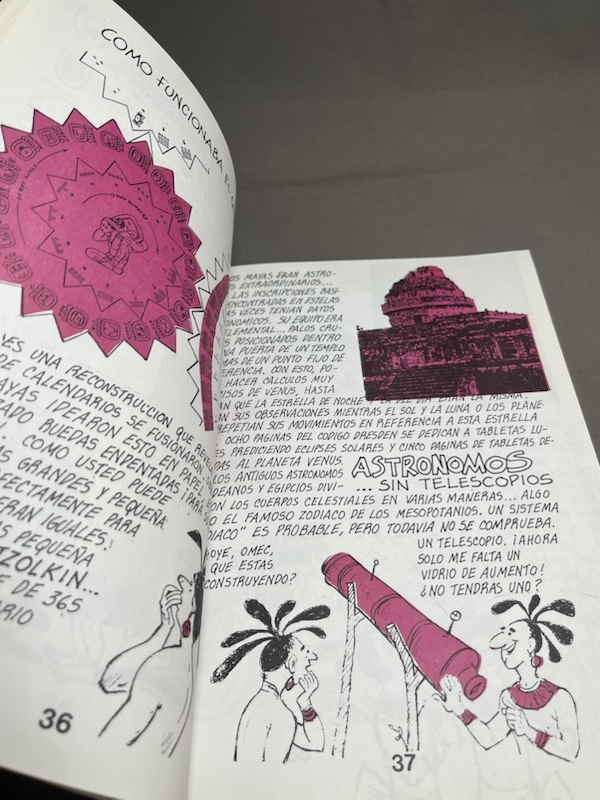 COMO FUNCIONABA EL
VES UNA RECONSTRUCCION QUE
DE CALENDARIOS SE FUSIONARON
MAYAS IDEARON ESTO EN PAPEL
ADO RUEDAS ENDENTADAS ¡PARA
COMO USTED PUEDE
S GRANDES Y PEQUEÑA
FECTAMENTE PARA
ERAN IGUALES,
S PEQUEÑA
TZOLKIN...
E DE 365
ARIO
36
OS MAYAS ERAN ASTRO-
S EXTRAORDINARIOS...
LAS INSCRIPCIONES BASI-
ENCONTRADAS EN ESTELAS
AS VECES TENIAN DATOS
NOMICOS. SU EQUIPO ERA
ELEMENTAL... PALOS CRU-
S POSICIONADOS DENTRO
NA PUERTA DE UN TEMPLO
MAS DE UN PUNTO FIJO DE
ERENCIA. CON ESTO, PO-
HACER CALCULOS MUY
ISOS DE VENUS, HASTA
AN QUE LA ESTRELLA DE NOCHE Y LA DEL DIA ERAN LA MISMA.
AN SUS OBSERVACIONES MIENTRAS EL SOL Y LA LUNA O LOS PLANE-
REPETIAN SUS MOVIMIENTOS EN REFERENCIA A ESTA ESTRELLA
OCHO PAGINAS DEL CODIGO DRESDEN SE DEDICAN A TABLETAS LU-
ES PREDICIENDO ECLIPSES SOLARES Y CINCO PAGINAS DE TABLETAS DE-
DAS AL PLANETA VENUS
LOS ANTIGUOS ASTRONOMOS
DEANOS Y EGIPCIOS DIVI-
ASTRONOMOS
... SIN TELESCOPIOS
ON LOS CUERPOS CELESTIALES EN VARIAS MANERAS... ALGO
O EL FAMOSO ZODIACO DE LOS MESOPOTANIOS. UN SISTEMA
DIACO" ES PROBABLE, PERO TODAVIA NO SE COMPRUEBA.
¡OYE, OMEC,
QUE ESTAS
CONSTRUYENDO?
UN TELESCOPIO. ¡AHORA
SOLO ME FALTA UN
VIDRIO DE AUMENTO!
¿NO TENDRAS UNO?
37